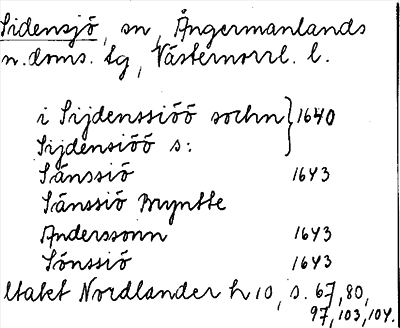 Sidensjö, sn, Ångermanlands
n. doms. tg, Västernorrl. l.
i Sijdenssiöö sochn } 1640
Sijdensiöö s:
Sänssiö 1643
Sänssiö Myntte
Anderssonn 1643
Sönssiö 1643
Utakt Nordlander h 10, s. 67, 80,
97, 103, 104.